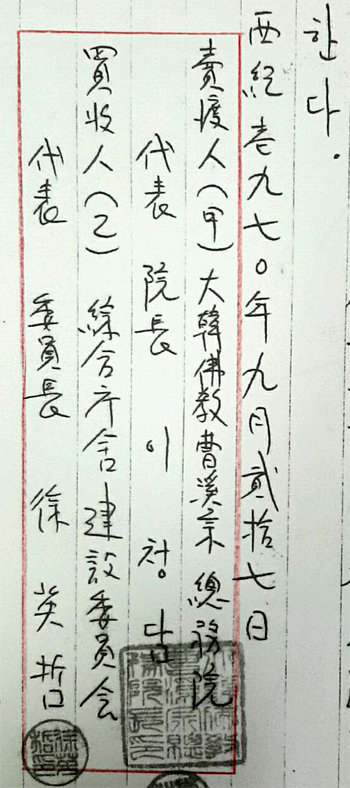 한다.
西紀壱九七〇年九月貳拾七日
賣渡人(甲) 大韓佛教曹溪宗 總務院
代表 院長 이 청담
買收人(乙) 綜合庁舍建設委員会
代表 委員長 徐英哲